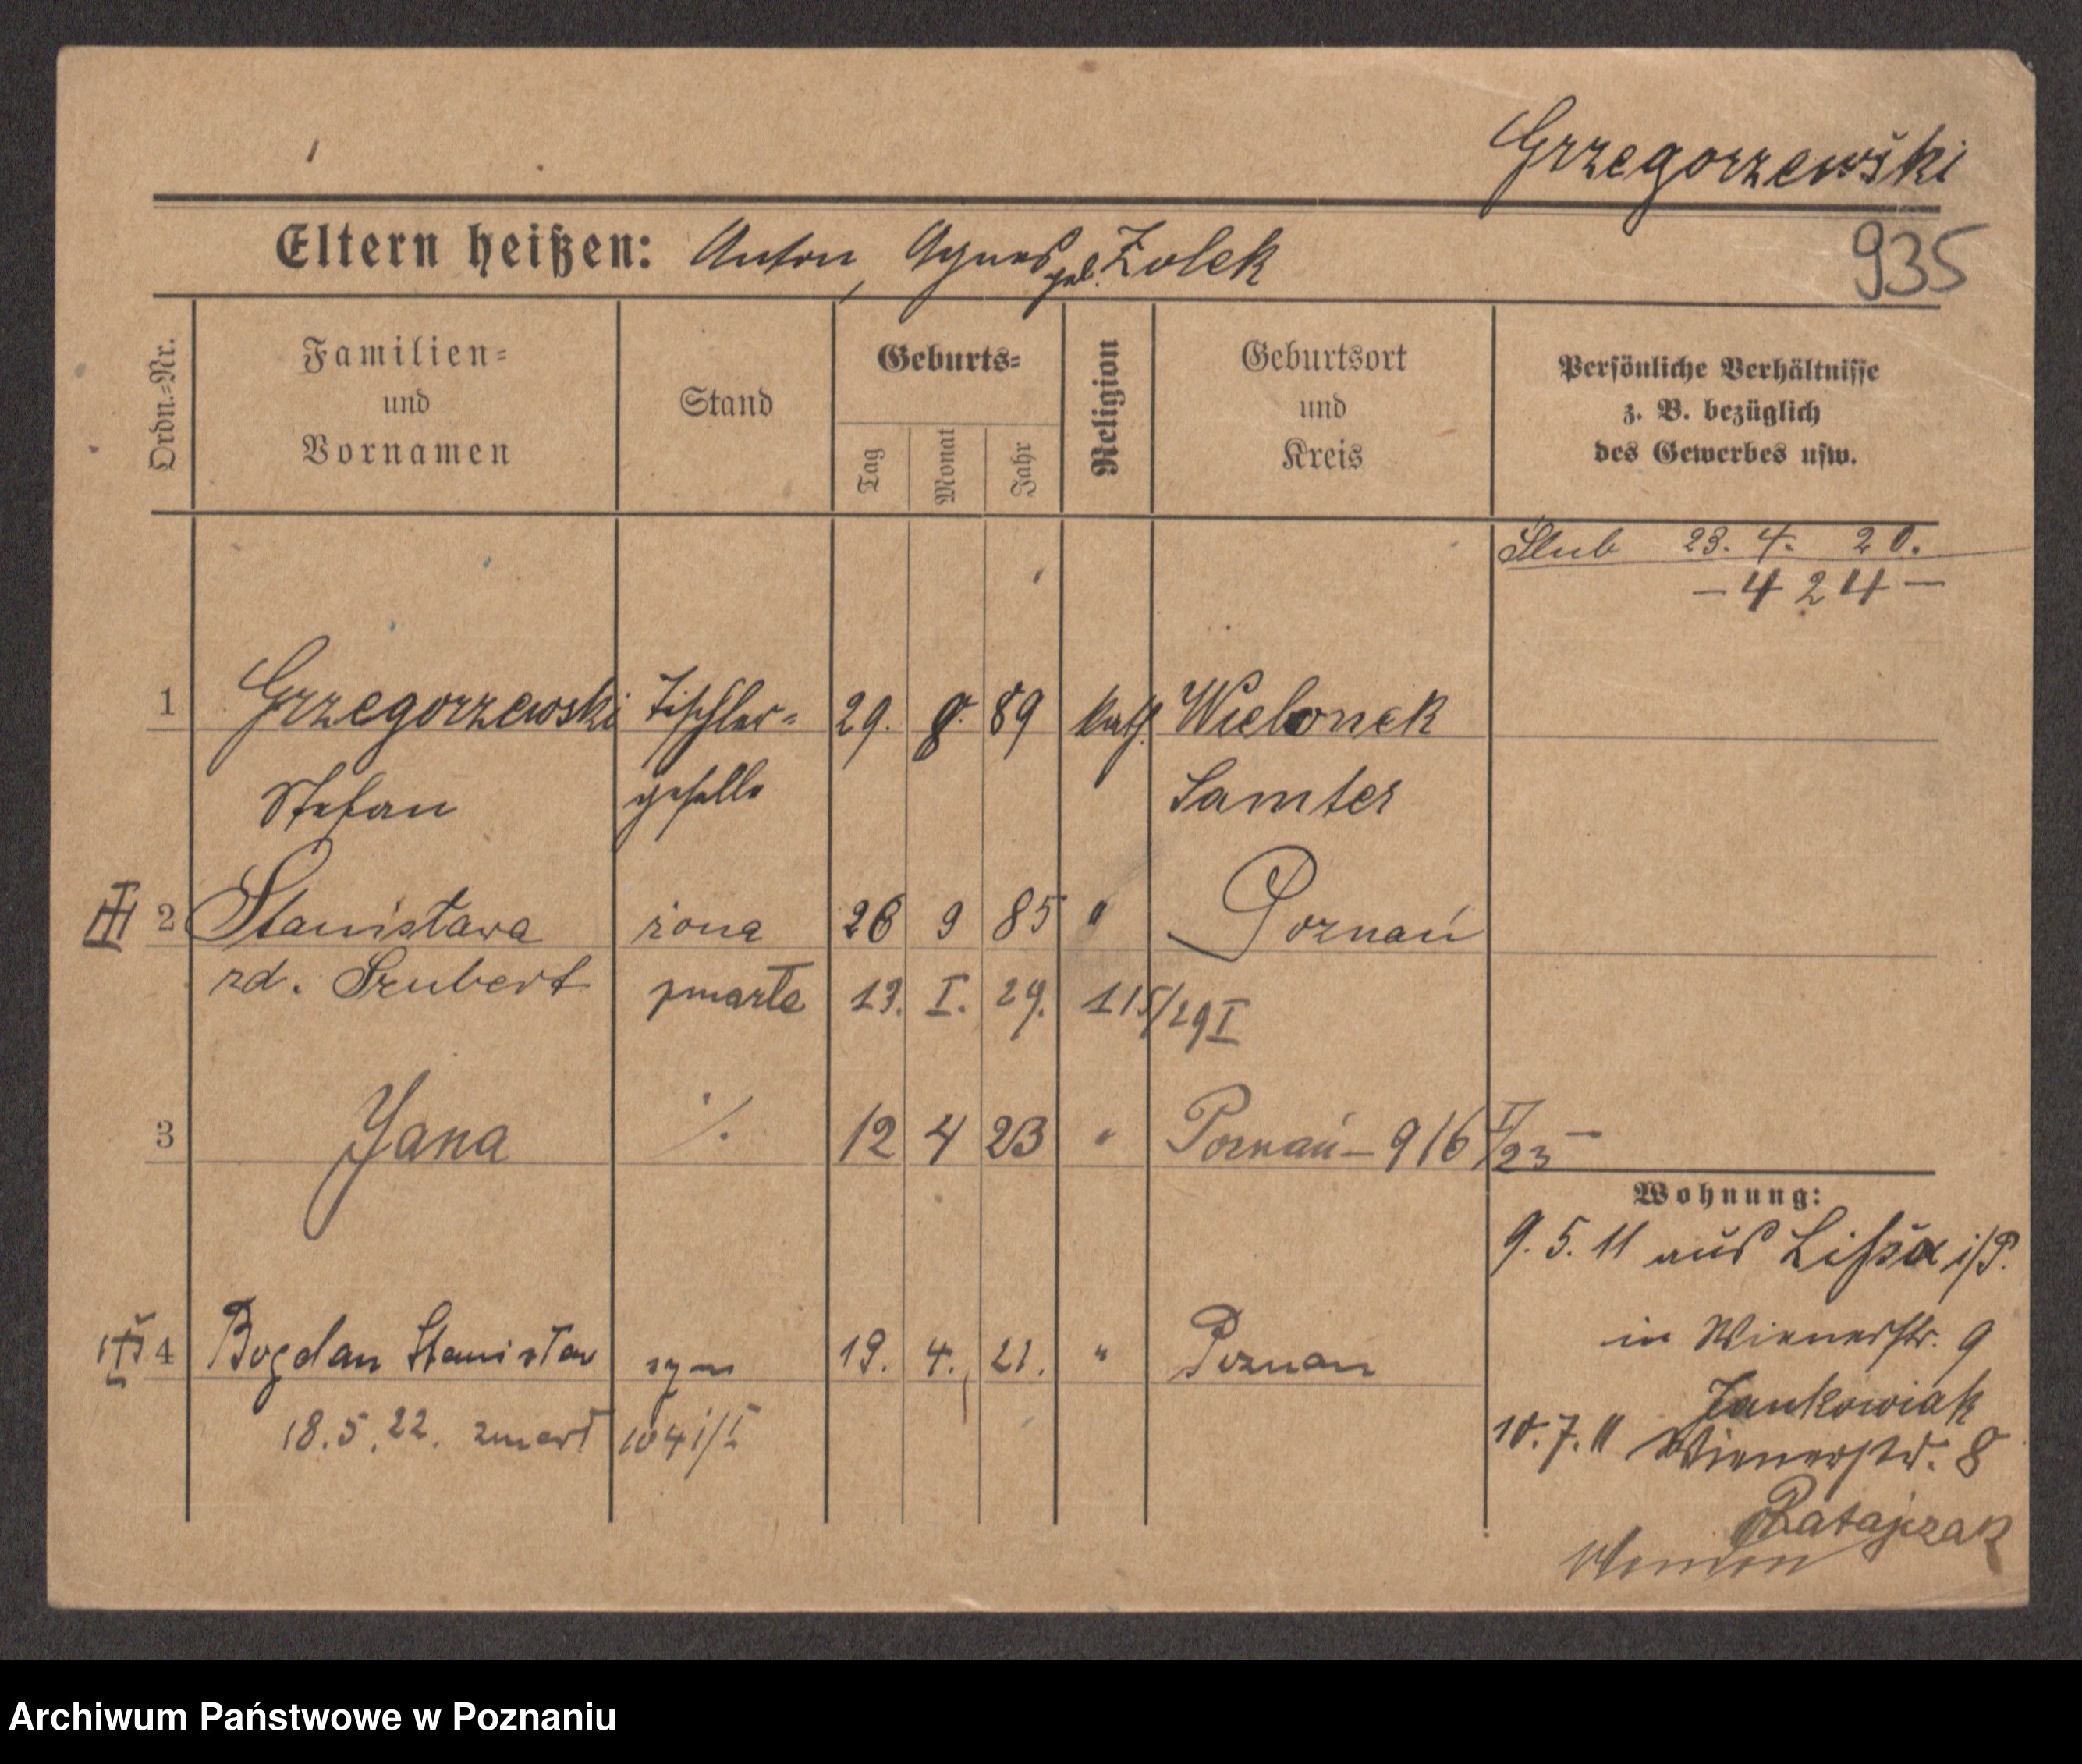 Grzegorzewski
Eltern heißen: Anton, Agnes geb. Zolek
935
Ordn.-Nr.
Familien-
und
Vornamen
Stand
Geburts-
Tag
Monat
Jahr
Religion
Geburtsort
und
Kreis
Persönliche Verhältnisse
z. B. bezüglich
des Gewerbes usw.
Ślub 23. 4. 20.
— 424 —
1 Grzegorzewski Tischler- 29. 8. 89 kath. Wielonek
Stefan geselle Samter
2 Stanisława żona 26 9 85 " Poznań
rd. Szubert zmarła 13. I. 29. 115/29 I
3 Jana ./. 12 4 23 " Poznań — 916 I/23 —
Wohnung:
9. 5. 11 aus Lissa i/P.
in Wienerstr. 9
Jankowiak
4 Bogdan Stanisław syn 19. 4. 21. " Poznan
18. 5. 22. zmarł 1041/I
10. 7. 11 Wienerstr. 8
Ratajczak